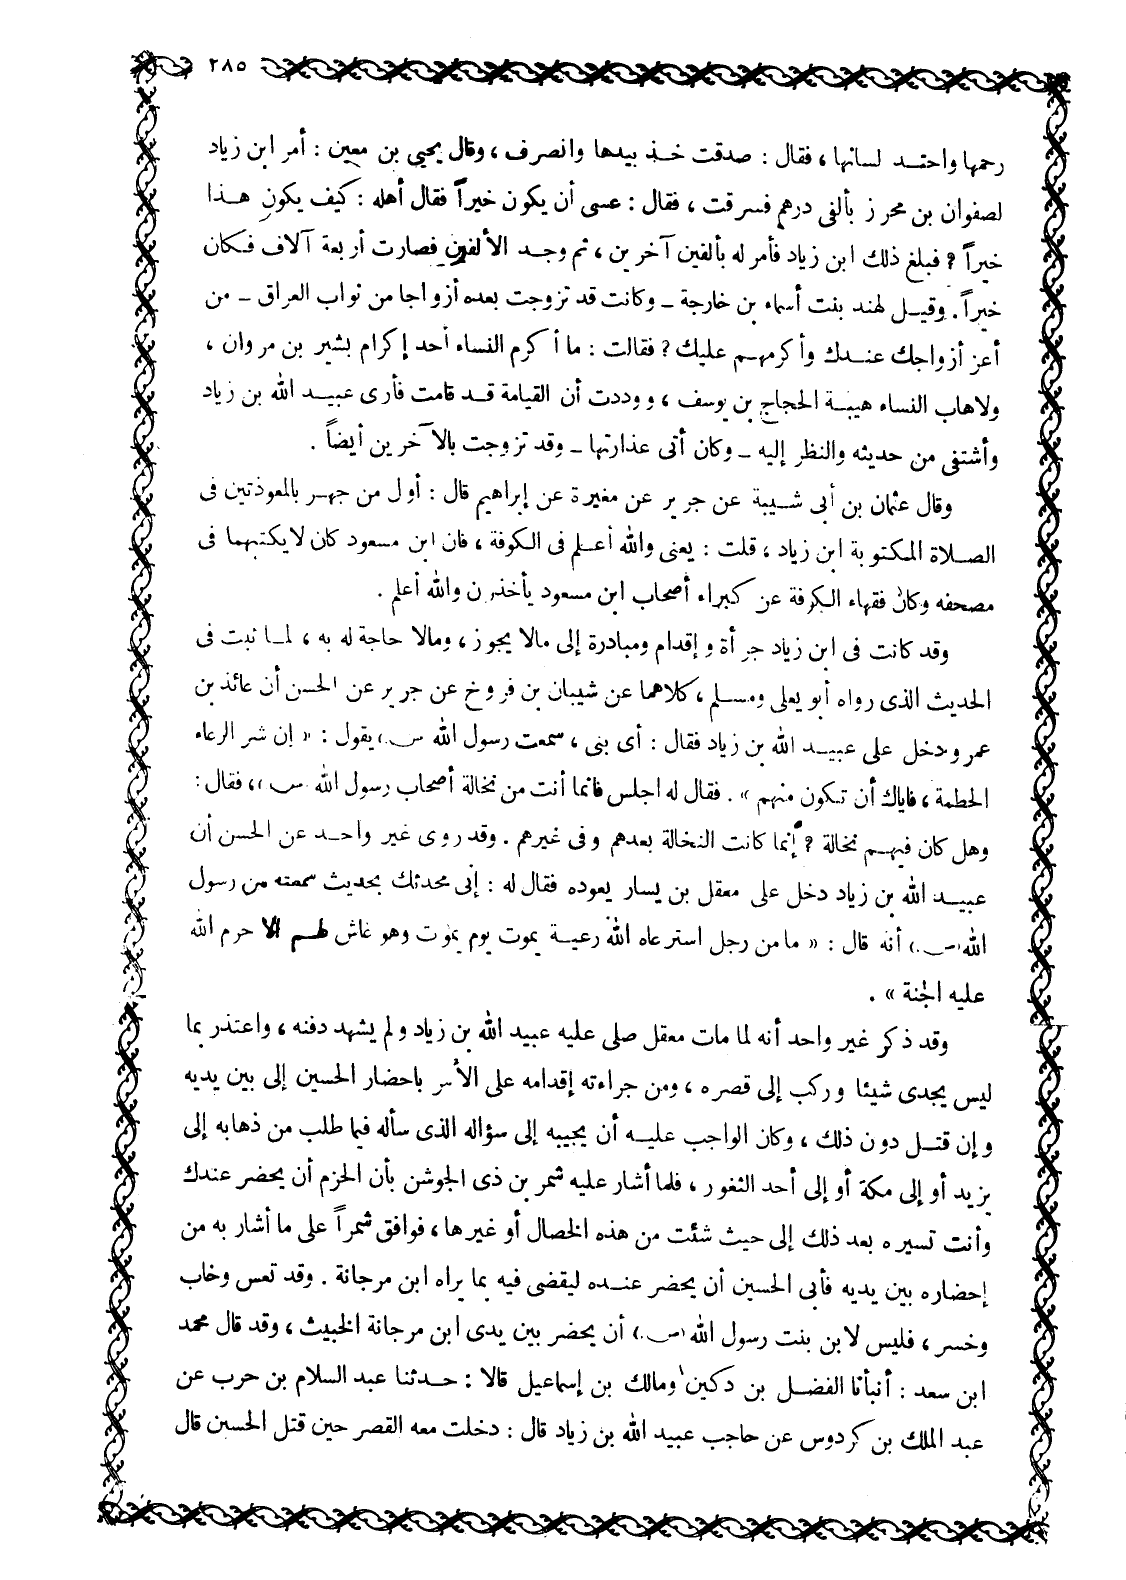 ٢٨٥
رحمها واحتد لسانها ، فقال : صدقت خذ بيدها وانصرف ، وقال يحيى بن معين : أمر ابن زياد
لصفوان بن محرز بألفى درهم فسرقت ، فقال : عسى أن يكون خيراً فقال أهله : كيف يكون هذا
خيراً ؟ فبلغ ذلك ابن زياد فأمر له بألفين آخرين ، ثم وجد الألفين فصارت أربعة آلاف فكان
خيراً . وقيل لهند بنت أسماء بن خارجة ــ وكانت قد تزوجت بعده أزواجا من نواب العراق ــ من
أعز أزواجك عندك وأكرمهم عليك ؟ فقالت : ما أكرم النساء أحد إكرام بشير بن مروان ،
ولا هاب النساء هيبة الحجاج بن يوسف ، ووددت أن القيامة قد قامت فأرى عبيد الله بن زياد
وأشتفى من حديثه والنظر إليه ــ وكان أتى عذارتها ــ وقد تزوجت بالآخرين أيضاً .
وقال عثمان بن أبى شيبة عن جرير عن مغيرة عن إبراهيم قال : أول من جهر بالمعوذتين فى
الصلاة المكتوبة ابن زياد ، قلت : يعنى والله أعلم فى الكوفة ، فان ابن مسعود كان لا يكتبهما فى
مصحفه وكان فقهاء الكوفة عن كبراء أصحاب ابن مسعود يأخذون والله أعلم .
وقد كانت فى ابن زياد جرأة وإقدام ومبادرة إلى مالا يجوز ، ومالا حاجة له به ، لما ثبت فى
الحديث الذى رواه أبو يعلى ومسلم ، كلاهما عن شيبان بن فروخ عن جرير عن الحسن أن عائذ بن
عمرو دخل على عبيد الله بن زياد فقال : أى بنى ، سمعت رسول الله (ص) يقول : « إن شر الرعاء
الحطمة ، فاياك أن تكون منهم » . فقال له اجلس فانما أنت من نخالة أصحاب رسول الله (ص) ، فقال :
وهل كان فيهم نخالة ؟ إنما كانت النخالة بعدهم وفى غيرهم . وقد روى غير واحد عن الحسن أن
عبيد الله بن زياد دخل على معقل بن يسار يعوده فقال له : إنى محدثك بحديث سمعته من رسول
الله (ص) أنه قال : « ما من رجل استرعاه الله رعية يموت يوم يموت وهو غاش لهم إلا حرم الله
عليه الجنة » .
وقد ذكر غير واحد أنه لما مات معقل صلى عليه عبيد الله بن زياد ولم يشهد دفنه ، واعتذر بما
ليس يجدى شيئا وركب إلى قصره ، ومن جراءته إقدامه على الأمر باحضار الحسين إلى بين يديه
وإن قتل دون ذلك ، وكان الواجب عليه أن يجيبه إلى سؤاله الذى سأله فيما طلب من ذهابه إلى
يزيد أو إلى مكة أو إلى أحد الثغور ، فلما أشار عليه شمر بن ذى الجوشن بأن الحزم أن يحضر عندك
وأنت تسيره بعد ذلك إلى حيث شئت من هذه الخصال أو غيرها ، فوافق شمراً على ما أشار به من
إحضاره بين يديه فأبى الحسين أن يحضر عنده ليقضى فيه بما يراه ابن مرجانة . وقد تعس وخاب
وخسر ، فليس لابن بنت رسول الله (ص) أن يحضر بين يدى ابن مرجانة الخبيث ، وقد قال محمد
ابن سعد : أنبأنا الفضل بن دكين ومالك بن إسماعيل قالا : حدثنا عبد السلام بن حرب عن
عبد الملك بن كردوس عن حاجب عبيد الله بن زياد قال : دخلت معه القصر حين قتل الحسين قال